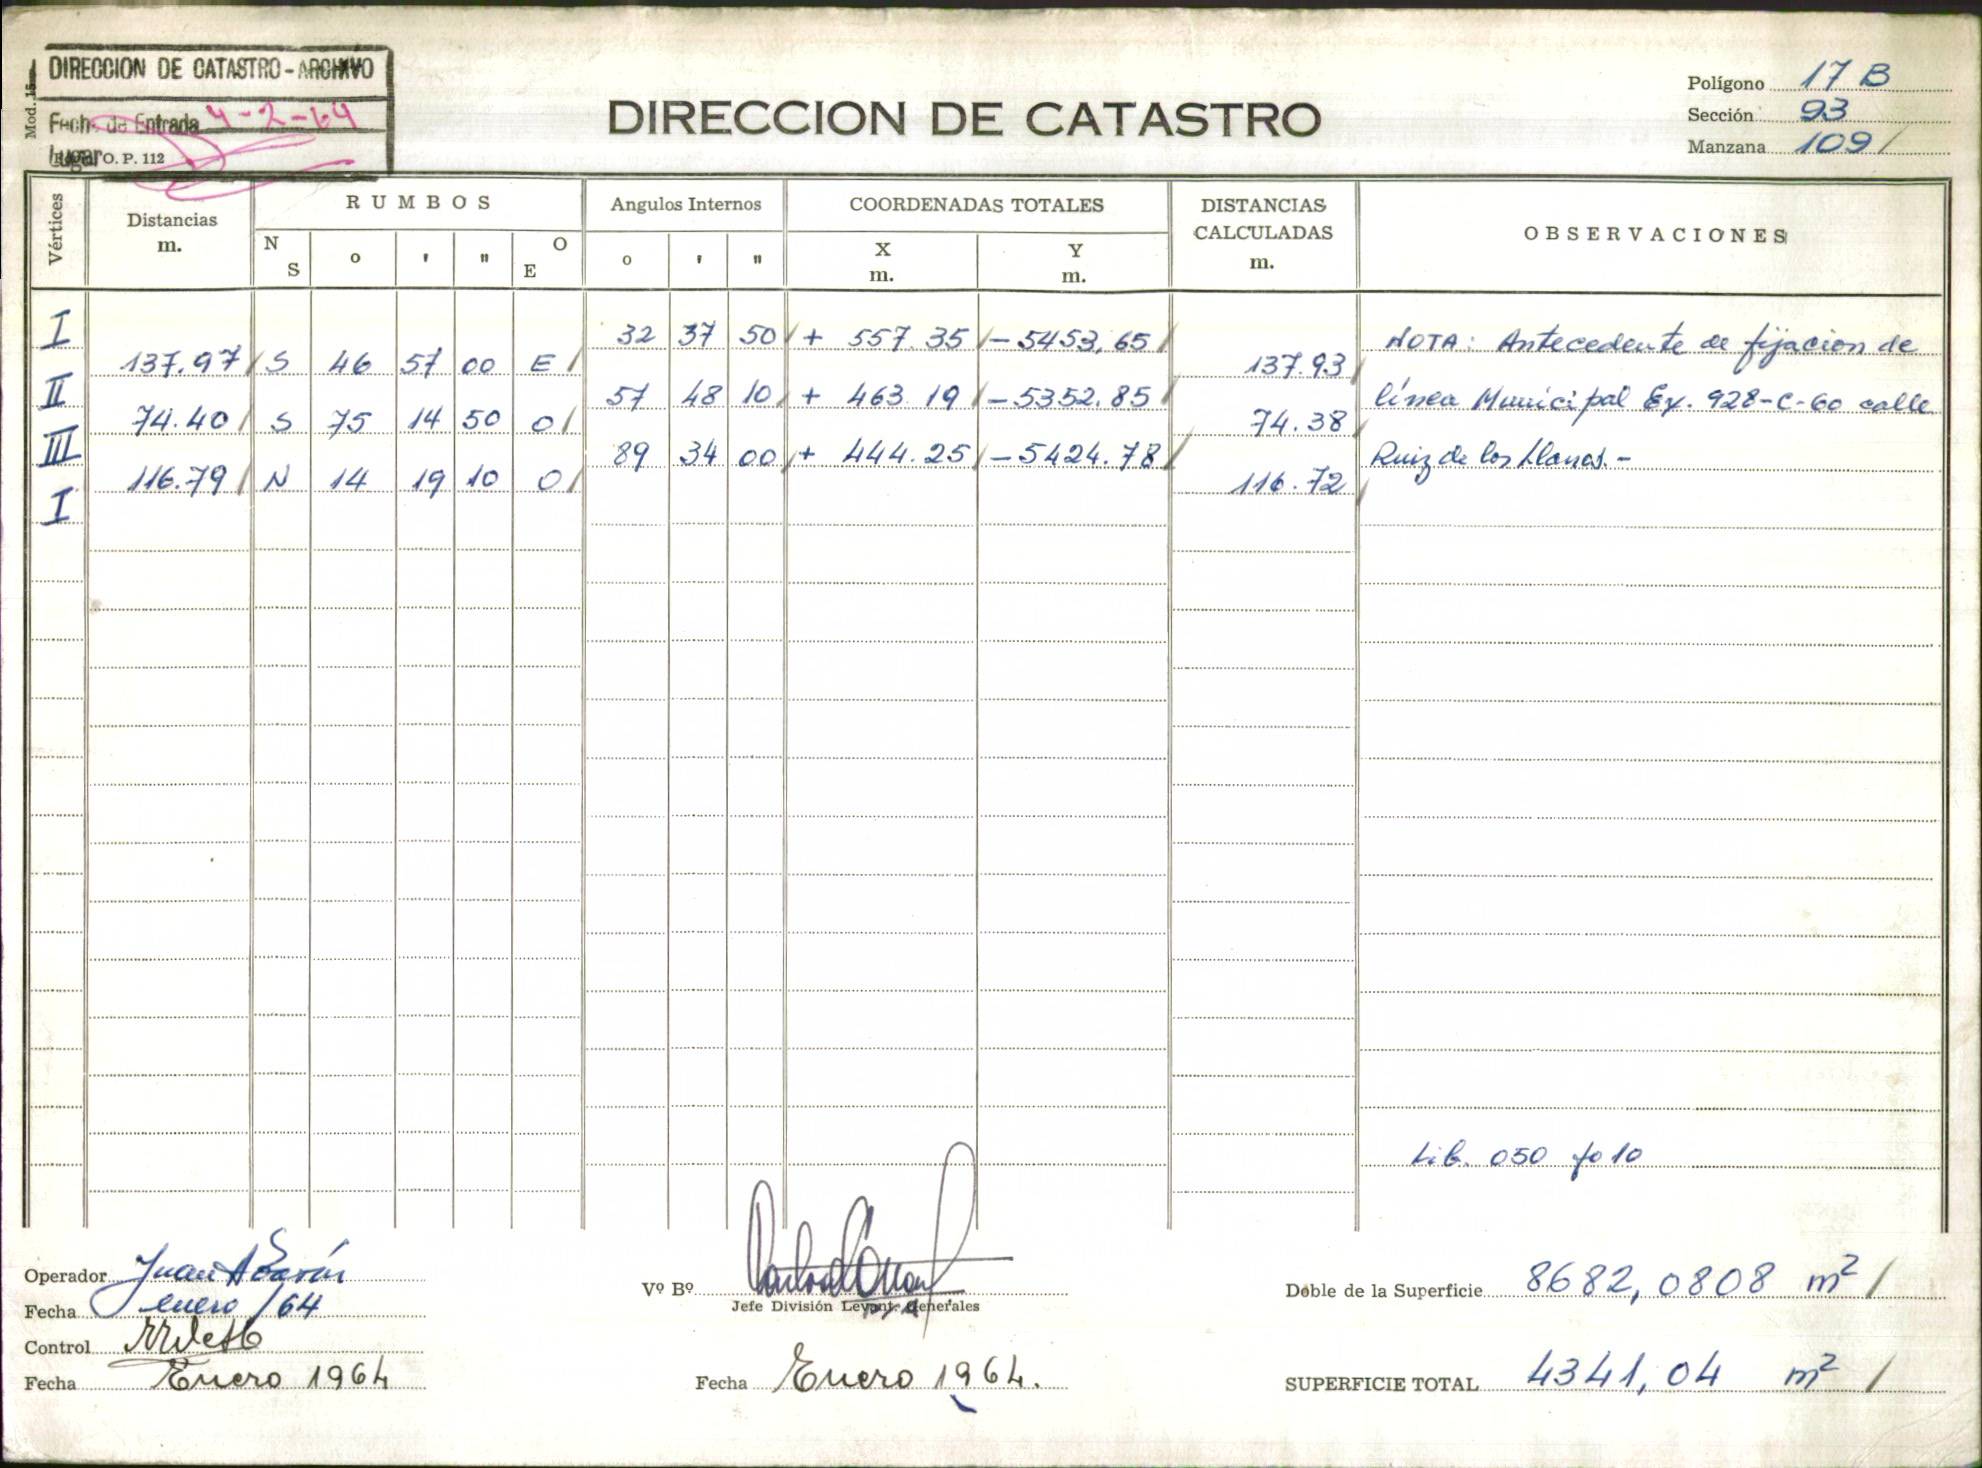 DIRECCION DE CATASTRO - ARCHIVO
Fecha de Entrada 4-2-64
Lugar
Mod. 15
O. P. 112
DIRECCION DE CATASTRO
Polígono 17 B
Sección 93
Manzana 109 /
Vértices
Distancias m.
RUMBOS
N S o ' " O E
Angulos Internos
o ' "
COORDENADAS TOTALES
X m. Y m.
DISTANCIAS CALCULADAS m.
OBSERVACIONES
I 32 37 50 / + 557.35 / - 5453,65 / NOTA: Antecedente de fijacion de
137.97 / S 46 57 00 E / 137.93 /
II 57 48 10 / + 463.19 / - 5352.85 / línea Municipal Ex. 928-C-60 calle
74.40 / S 75 14 50 O / 74.38 /
III 89 34 00 / + 444.25 / - 5424.78 / Ruiz de los Llanos.-
116.79 / N 14 19 10 O / 116.72 /
I
Lib. 050 fo 10
Operador Juan A
Fecha enero /64
Control
Fecha Enero 1964
Vº Bº
Jefe División Levant. Generales
Fecha Enero 1964.
Doble de la Superficie 8682,0808 m² /
SUPERFICIE TOTAL 4341,04 m² /